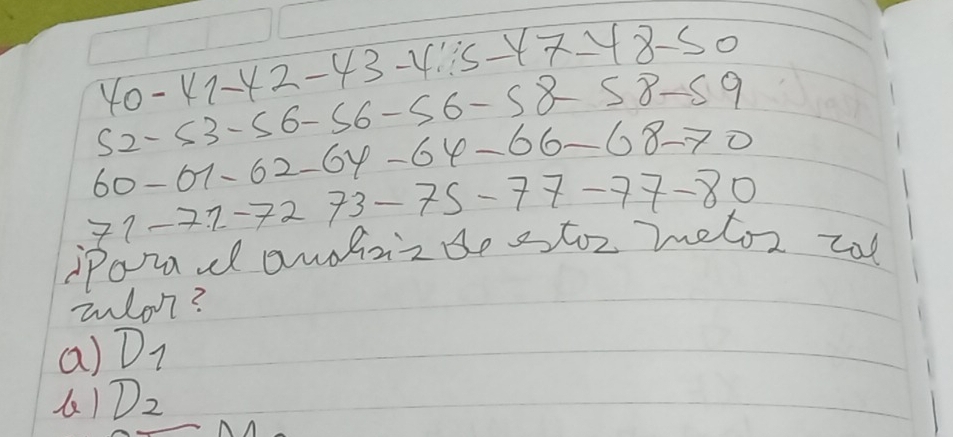 40-41-42-43-45-47-48-50
52-53-56-56-56-58-58-59
60-61-62-64-64-66-68-70
71-71-72 73-75-77-77-80
¿Para el analisis de estos metos cal
cular?
a) D1
b) D2